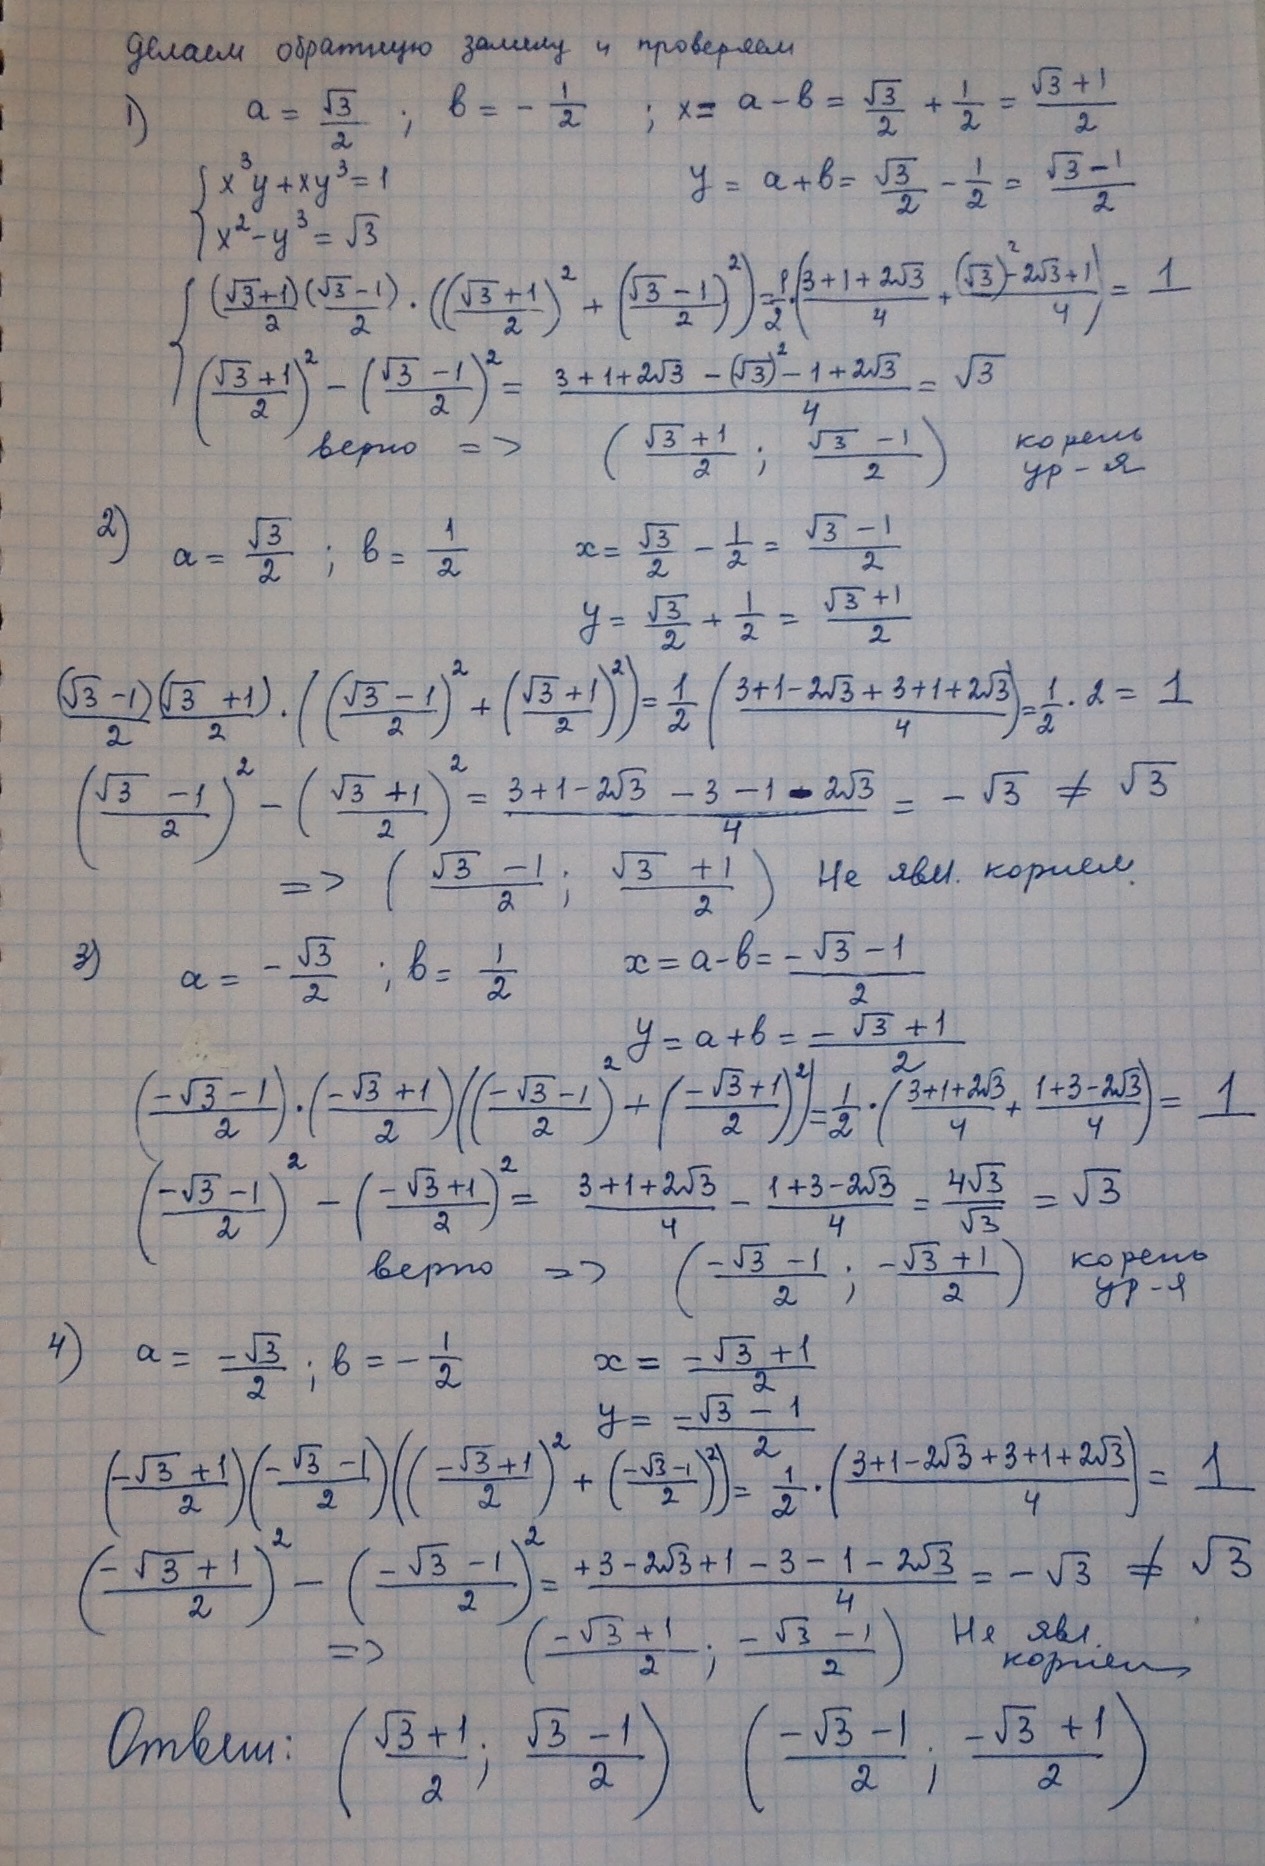 делаем обратную замену и проверяем
1) a = √3/2 ; b = -1/2 ; x = a - b = √3/2 + 1/2 = (√3+1)/2
{ x³y + xy³ = 1    y = a + b = √3/2 - 1/2 = (√3-1)/2
{ x² - y³ = √3
{ (√3+1)/2 (√3-1)/2 · (((√3+1)/2)² + ((√3-1)/2)²) = 1/2 · ((3+1+2√3)/4 + ((√3)²-2√3+1)/4) = 1
((√3+1)/2)² - ((√3-1)/2)² = (3+1+2√3-(√3)²-1+2√3)/4 = √3
верно => ((√3+1)/2 ; (√3-1)/2) корень
ур-я
2) a = √3/2 ; b = 1/2    x = √3/2 - 1/2 = (√3-1)/2
y = √3/2 + 1/2 = (√3+1)/2
(√3-1)/2 (√3+1)/2 · (((√3-1)/2)² + ((√3+1)/2)²) = 1/2 ((3+1-2√3+3+1+2√3)/4) = 1/2 · 2 = 1
((√3-1)/2)² - ((√3+1)/2)² = (3+1-2√3-3-1-2√3)/4 = -√3 ≠ √3
=> ((√3-1)/2 ; (√3+1)/2) Не явл. корнем.
3) a = -√3/2 ; b = 1/2    x = a - b = (-√3-1)/2
y = a + b = (-√3+1)/2
((-√3-1)/2) · ((-√3+1)/2) (((-√3-1)/2)² + ((-√3+1)/2)²) = 1/2 · ((3+1+2√3)/4 + (1+3-2√3)/4) = 1
((-√3-1)/2)² - ((-√3+1)/2)² = (3+1+2√3)/4 - (1+3-2√3)/4 = 4√3/√3 = √3
верно => ((-√3-1)/2 ; (-√3+1)/2) корень
ур-я
4) a = -√3/2 ; b = -1/2    x = (-√3+1)/2
y = (-√3-1)/2
((-√3+1)/2) ((-√3-1)/2) (((-√3+1)/2)² + ((-√3-1)/2)²) = 1/2 · ((3+1-2√3+3+1+2√3)/4) = 1
((-√3+1)/2)² - ((-√3-1)/2)² = (+3-2√3+1-3-1-2√3)/4 = -√3 ≠ √3
=> ((-√3+1)/2 ; (-√3-1)/2) Не явл.
корнем
Ответ: ((√3+1)/2 ; (√3-1)/2) ((-√3-1)/2 ; (-√3+1)/2)